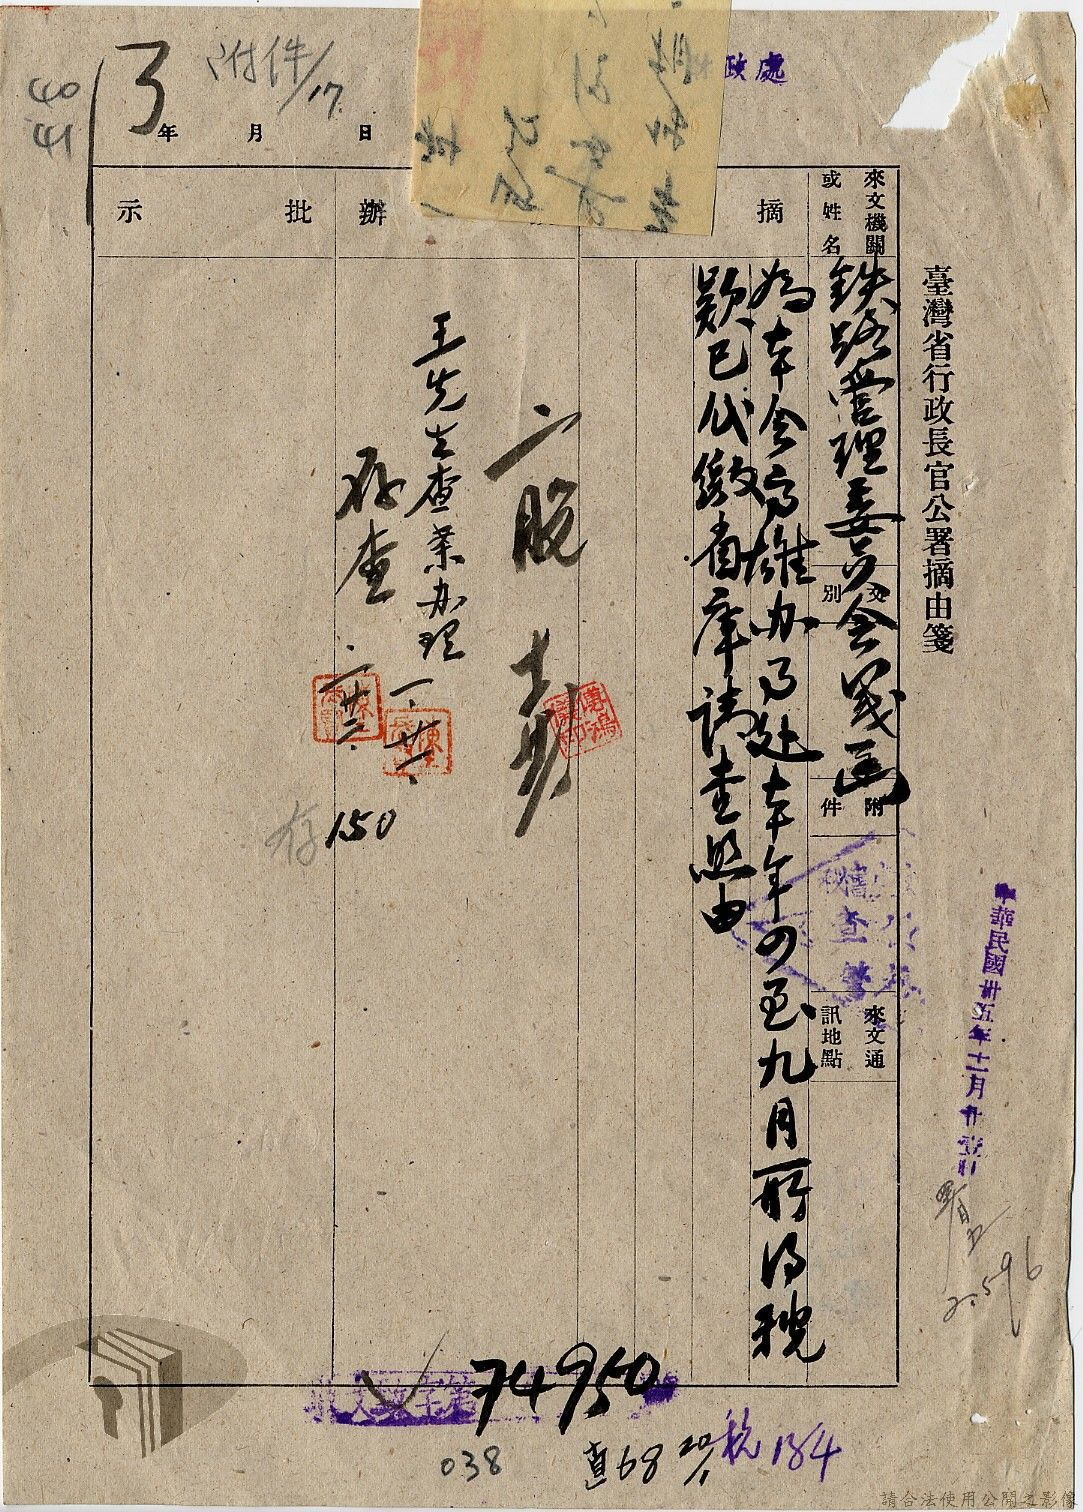 臺灣省行政長官公署摘由箋
中華民國卅五年十二月廿壹日
2.596
政處
來文機關
或姓名
鉄路管理委員会箋函
文
別
附
件
查
來文通
訊地點
摘
為本会高雄办事处本年四至九月所得稅
款已代繳省庫請查照由
二股
辦
王先生查案办理
存查
批
示
150
存
附件/17
3
年
月
日
40
41
74950
038
直68
20/1
稅184
請合法使用公開之影像